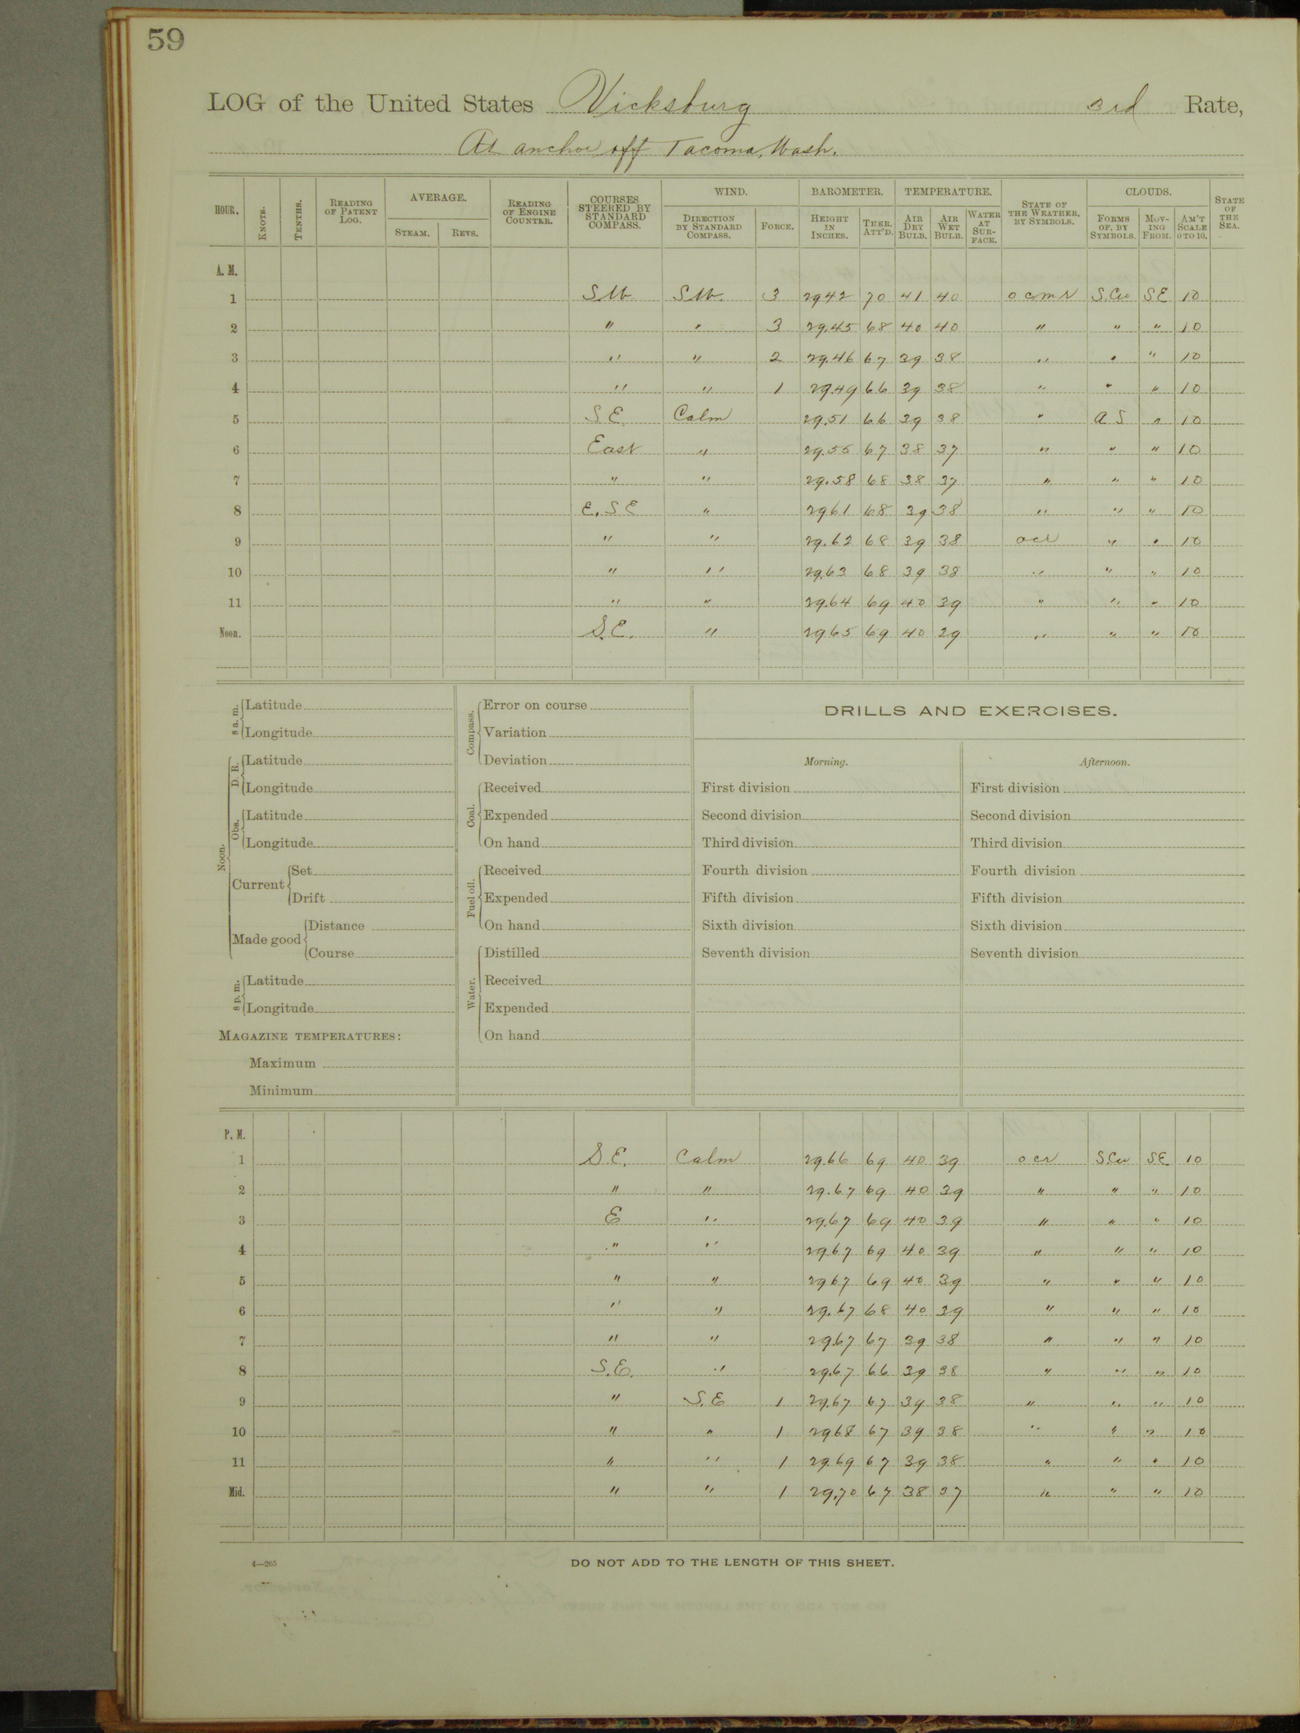 59
LOG of the United States Vicksburg 3rd Rate,
At anchor off Tacoma, Wash.
HOUR. KNOTS. TENTHS. READING OF PATENT LOG. AVERAGE. STEAM. REVS. READING OF ENGINE COUNTER. COURSES STEERED BY STANDARD COMPASS. WIND. DIRECTION BY STANDARD COMPASS. FORCE. BAROMETER. HEIGHT IN INCHES. THER. ATT'D. TEMPERATURE. AIR DRY BULB. AIR WET BULB. WATER AT SURFACE. STATE OF THE WEATHER, BY SYMBOLS. CLOUDS. FORMS OF, BY SYMBOLS. MOVING FROM. AM'T SCALE 0 TO 10. STATE OF THE SEA.
A. M.
1 SW SW. 3 2942 70 41 40 ocmr S.Cu SE 10
2 " " 3 29.45 68 40 40 " " " 10
3 " " 2 29.46 67 39 38 " " " 10
4 " " 1 29.49 66 39 38 " " " 10
5 SE Calm 29.51 66 39 38 " A S " 10
6 East " 29.55 67 38 37 " " " 10
7 " " 29.58 68 38 37 " " " 10
8 E. SE " 2961 68 39 38 " " " 10
9 " " 29.62 68 39 38 ocr " " 10
10 " " 29.63 68 39 38 " " " 10
11 " " 29.64 69 40 39 " " " 10
Noon. S.E. " 2965 69 40 39 " " " 10
8 a. m. Latitude Compass. Error on course DRILLS AND EXERCISES.
Longitude Variation
Noon. D. R. Latitude Deviation Morning. Afternoon.
Longitude Coal. Received First division First division
Obs. Latitude Expended Second division Second division
Longitude On hand Third division Third division
Current Set Fuel oil. Received Fourth division Fourth division
Drift Expended Fifth division Fifth division
Made good Distance On hand Sixth division Sixth division
Course Water. Distilled Seventh division Seventh division
8 p. m. Latitude Received
Longitude Expended
MAGAZINE TEMPERATURES: On hand
Maximum
Minimum
P. M.
1 S.E. Calm 29.66 69 40 39 ocr S.Cu SE 10
2 " " 29.67 69 40 39 " " " 10
3 E " 29.67 69 40 39 " " " 10
4 " " 2967 69 40 39 " " " 10
5 " " 2967 69 40 39 " " " 10
6 " " 29.67 68 40 39 " " " 10
7 " " 29.67 67 39 38 " " " 10
8 S.E. " 29.67 66 39 38 " " " 10
9 " S.E 1 29.67 67 39 38 " " " 10
10 " " 1 2968 67 39 38 " " " 10
11 " " 1 29.69 67 39 38 " " " 10
Mid. " " 1 29.70 67 38 37 " " " 10
4—265 DO NOT ADD TO THE LENGTH OF THIS SHEET.